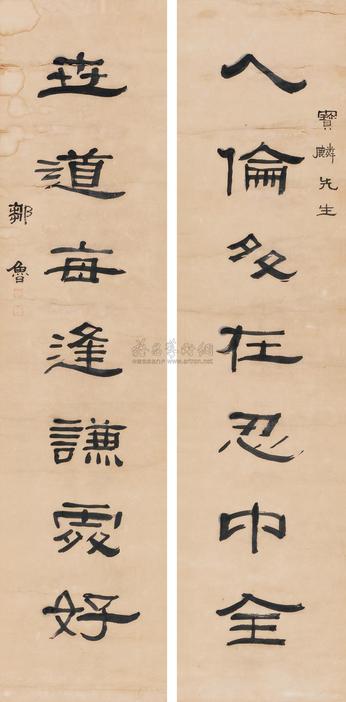 寶麟先生
人倫多在忍中全
世道每逢謙處好
鄒魯
www.artron.net